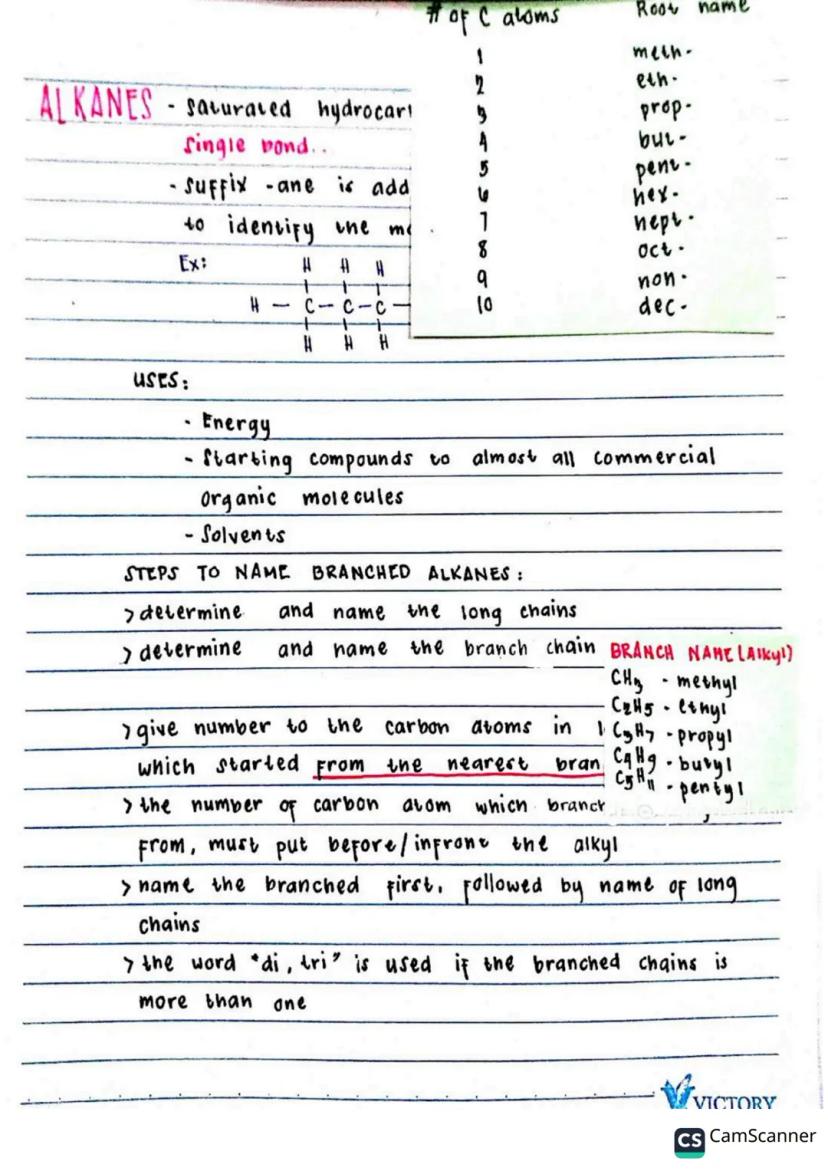 # of C atoms Root name
1 meth-
2 eth-
3 prop-
4 but-
5 pent-
6 hex-
7 hept-
8 oct-
9 non-
10 dec-
ALKANES - saturated hydrocar
single bond..
- suffix -ane is add
to identify the m
Ex:
H H H
H — C — C — C —
H H H
USES:
- Energy
- Starting compounds to almost all commercial
organic molecules
- Solvents
STEPS TO NAME BRANCHED ALKANES:
> determine and name the long chains
> determine and name the branch chain
BRANCH NAME (Alkyl)
CH3 - methyl
C2H5 - ethyl
C3H7 - propyl
C4H9 - butyl
C5H11 - pentyl
> give number to the carbon atoms in l
which started from the nearest bran
> the number of carbon atom which branch
from, must put before/infront the alkyl
> name the branched first, followed by name of long
chains
> the word "di, tri" is used if the branched chains is
more than one
VICTORY
CS CamScanner